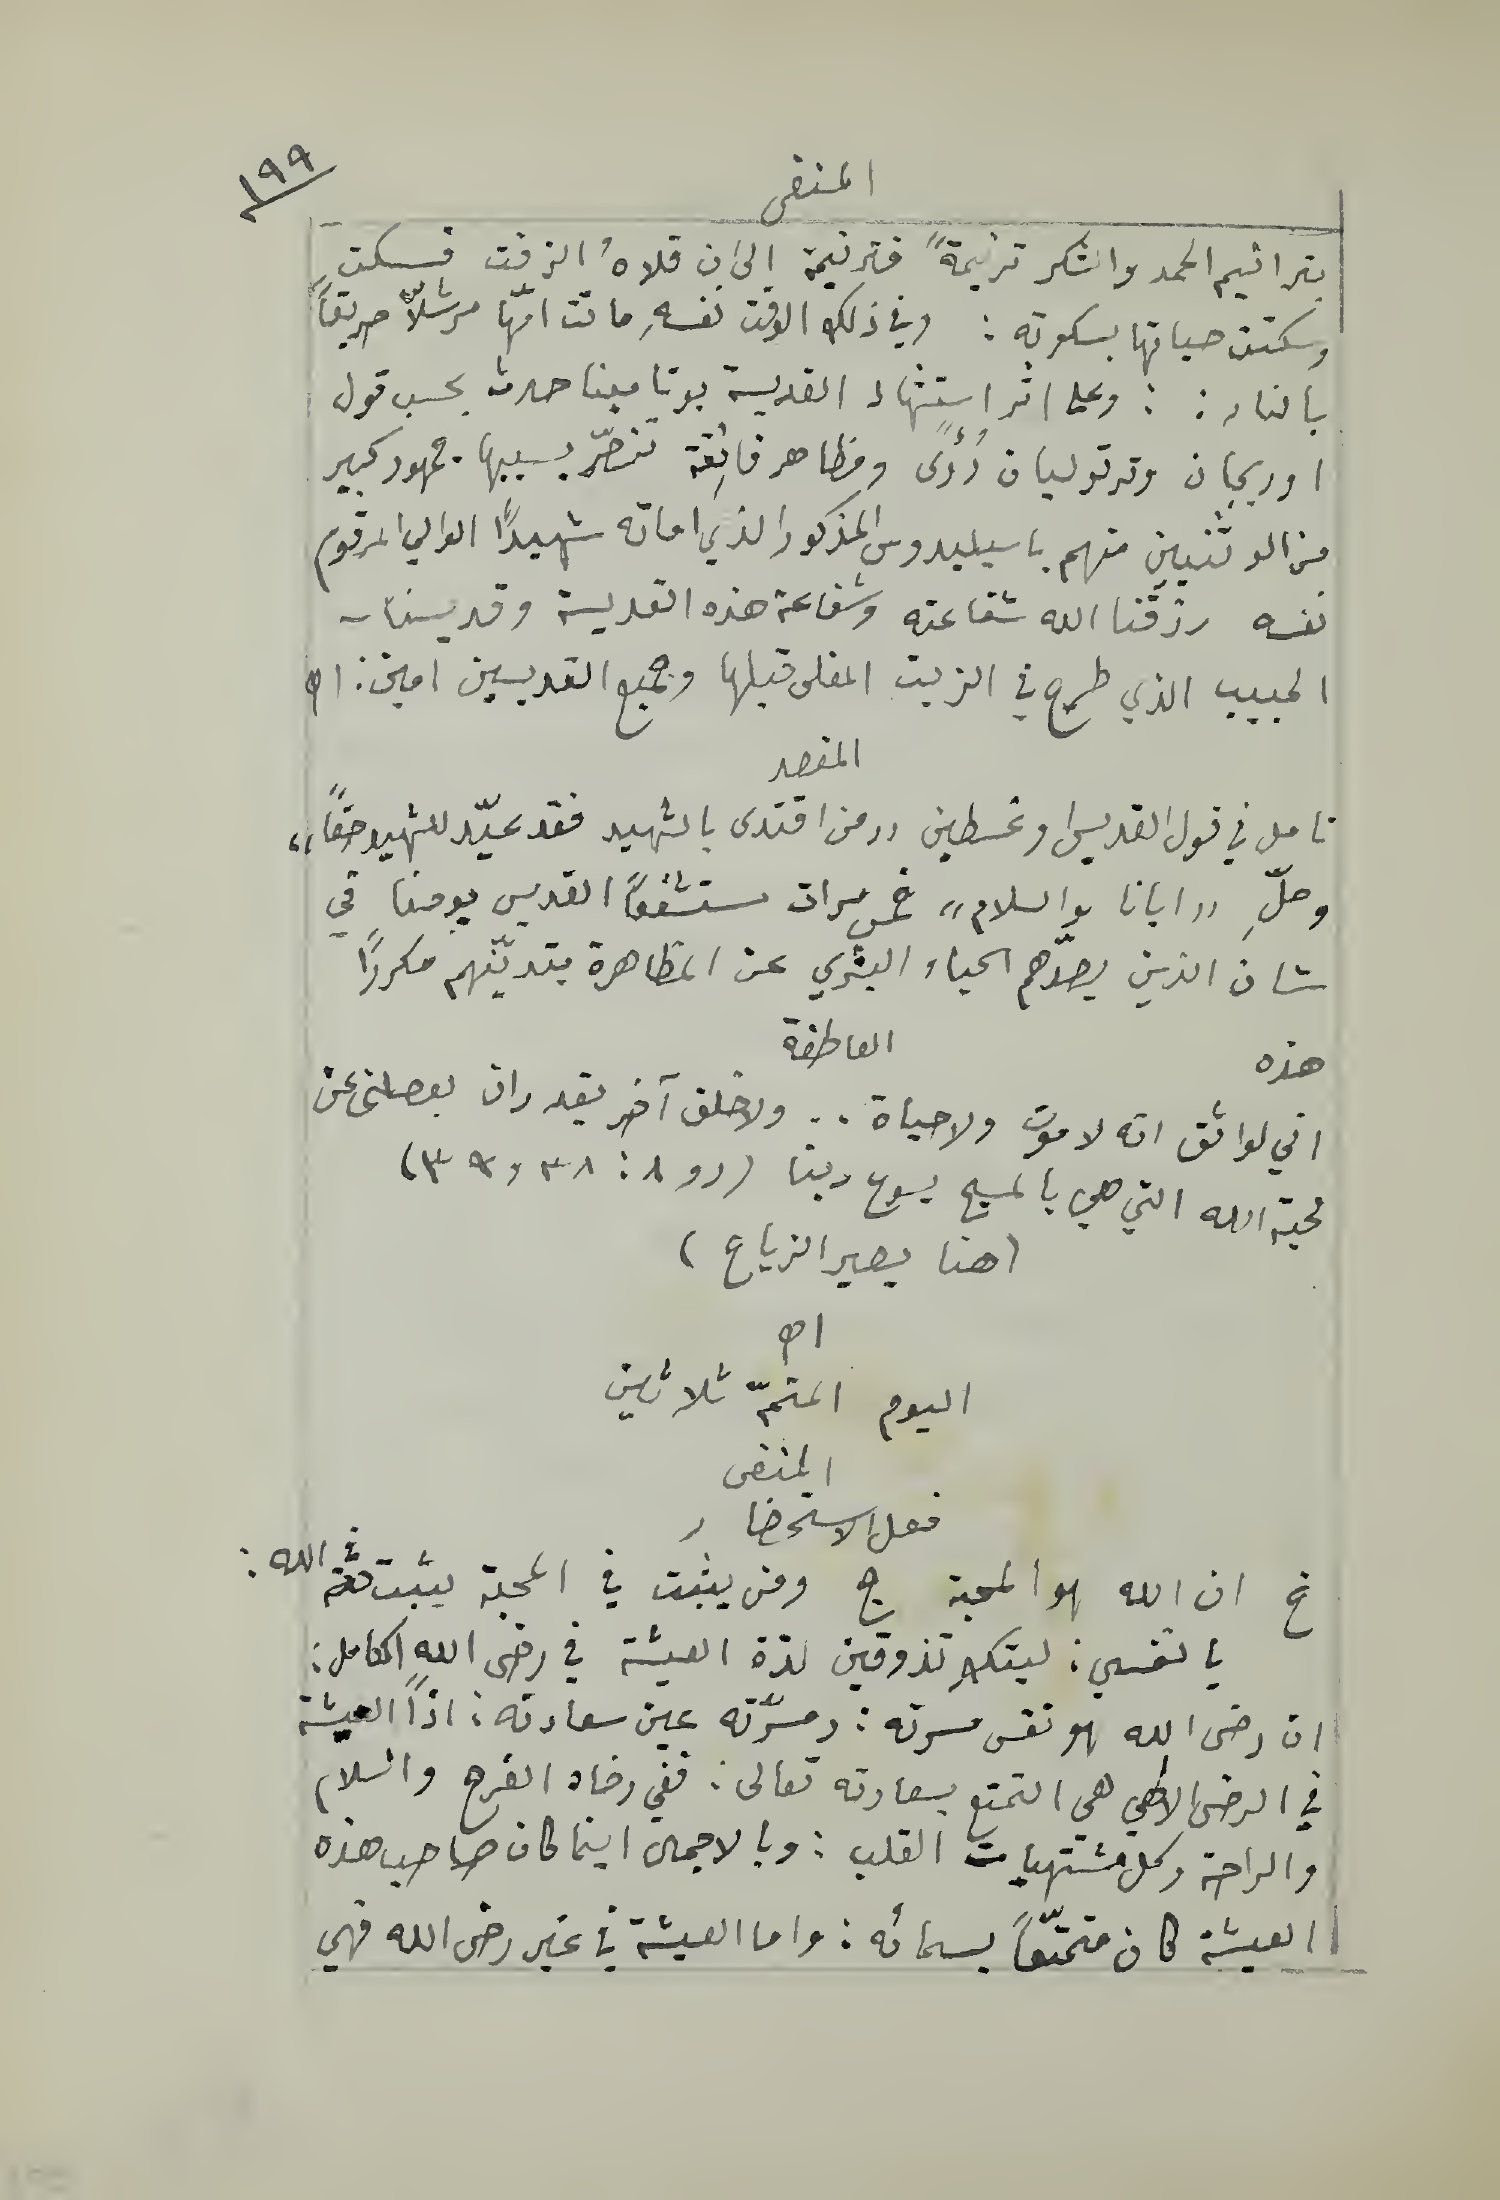 ١٩٩
المنقى
بتراتيم الحمد والشكر ترنيمةً فترنيمة الى ان قلاهُ الزفت فسكت
وسكتت حياتها بسكوته : وفي ذلك الوقت نفسهِ ماتت امّها مرشلّا حريقاً
بالنار : : وعلى اثر استشهاد القديسة بوتامينا حدث بحسب قول
اوريجان وترتوليان رُؤًى ومظاهر فائقة تنصّر بسببها جمهور كبير
من الوثنيين منهم باسيليدوس المذكور الذي اماته شهيدًا الوالي المرقوم
نفسه رزقنا الله شفاعته وشفاعة هذه القديسة وقديسنا
الحبيب الذي طرح في الزيت المغلى قبلها وجميع القديسين امين : اه
المقصد
تامل في قول القديس اوغسطين ,,من اقتدى بالشهيد فقد عيّد للشهيد حقاً,,
وصلِّ ,,ابانا والسلام,, خمس مرات مستشفعاً القديس يومنا في
شان الذين يصدّهم الحياء البشري عن المظاهرة بتديّنهم مكررًا
هذه العاطفة
اني لواثق انه لا موت ولا حياة .. ولا خلق آخر يقدر ان يفصلني عن
محبة الله التي هي بالمسيح يسوع ربنا (رو ٨ : ٣٨ و ٣٩)
(هنا يصير الزياع)
اه
اليوم المتمّ ثلاثين
المنقى
فعل الاستحضار
خ ان الله هو المحبة ج ومن يثبت في المحبة يثبت في الله :
يا نفسي : ليتكِ تذوقين لذة العيشة في رضى الله الكامل :
ان رضى الله هو نفس مسرته : ومسرّته عين سعادته : اذاً العيشة
في الرضى الالهي هي التمتع بسعادته تعالى : ففي رضاه الفرح والسلام
والراحة وكل مشتهيات القلب : وبالاجمال اينما كان صاحب هذه
العيشة كان متمتّعاً بسمائه : واما العيشة في غير رضى الله فهي